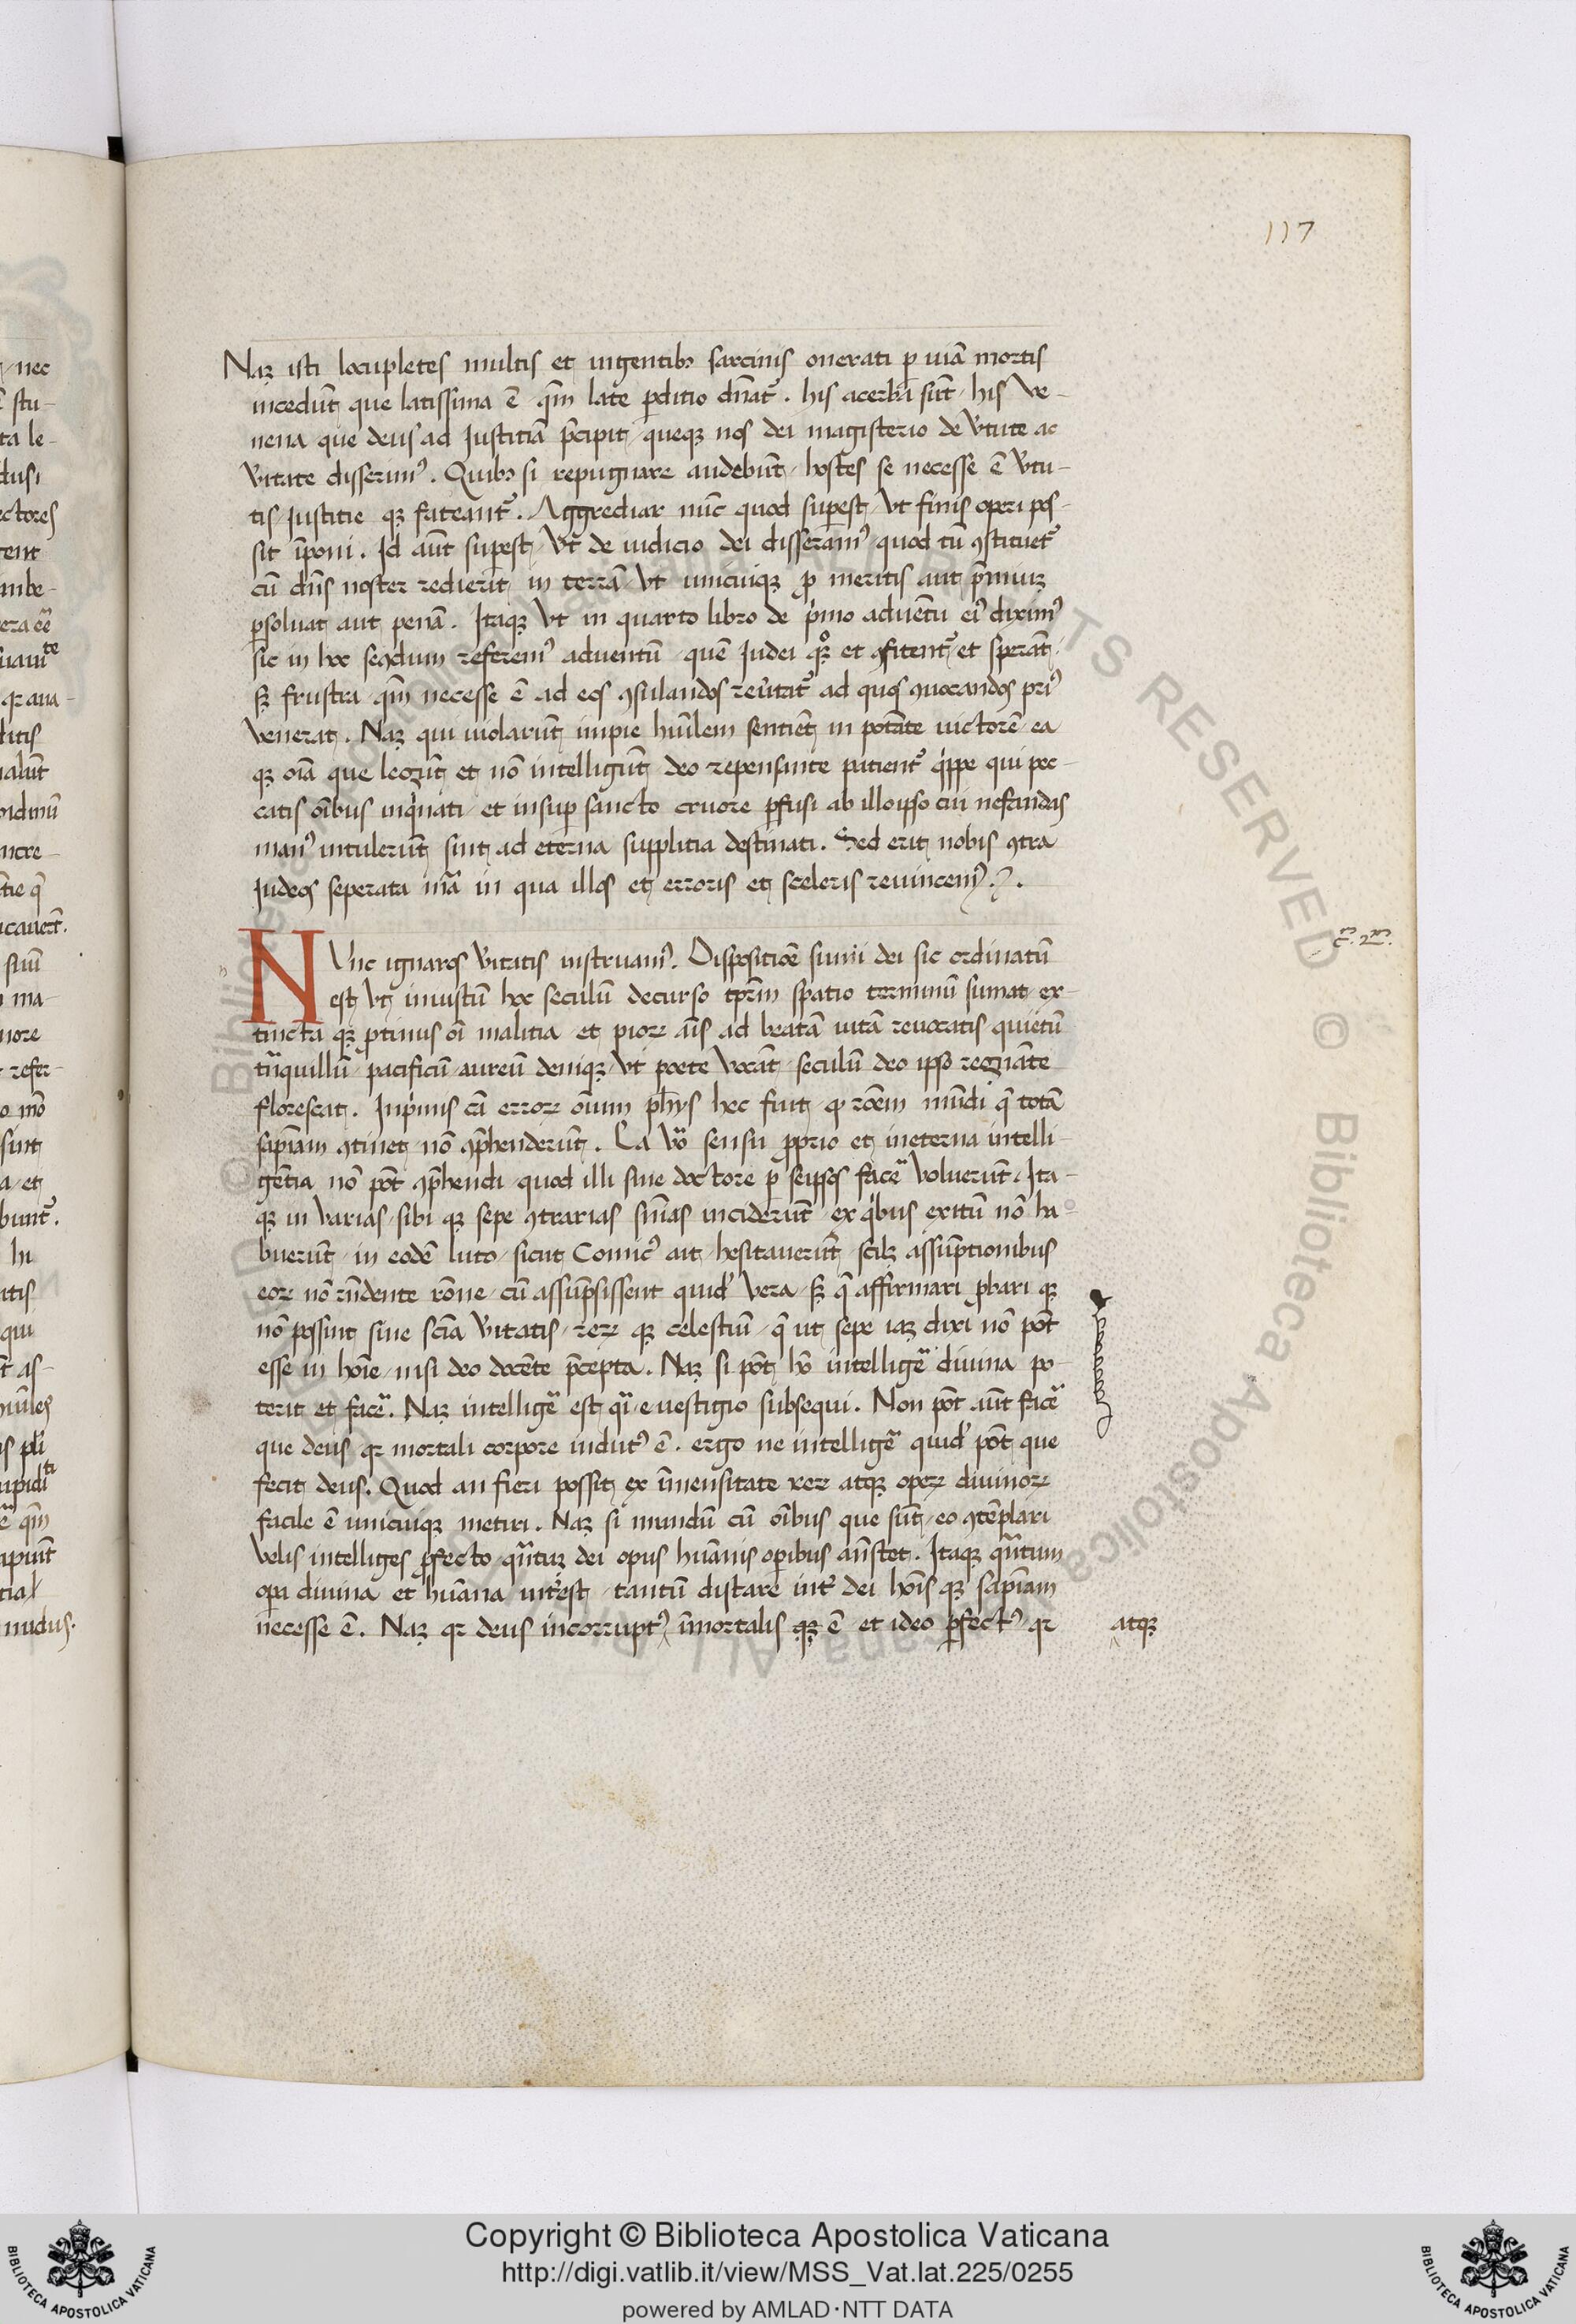 117
Naꝫ isti locupletes multis et ingentibꝰ sarcinis onerati ꝑ uiā mortis
incedūt que latissima ē qm̄ late ꝑditio dn̄at᷑. his acerba sūt his ve-
nena que deus ad Justitiā p̄cipit queqꝫ nos dei magisterio de v̄tute ac
v̄itate disserimꝰ. Quibꝰ si repugnare audebūt hostes se necesse ē v̄tu-
tis Justitie qꝫ fateant᷑. Aggrediar nūc quod superest vt finis operi pos-
sit īponi. Id aūt superest vt de iudicio dei disseramꝰ quod tū ꝯstituet᷑
cū dn̄s noster redierit in terrā vt unicuiqꝫ ꝓ meritis aut p̄miuꝫ
ꝑsoluat aut penā. Itaqꝫ vt in quarto libro de p̍mo aduētu eiꝰ diximꝰ
sic in hoc secūdum referemꝰ aduentū quē Judei qꝫ et ꝯfitent᷑ et sperāt
sꝫ frustra qm̄ necesse ē ad eos ꝯsulandos reūtat᷑ ad quos ꝯuocandos priꝰ
venerat. Naꝫ qui uiolarūt impie hūilem sentiēt in potāte uictorē ea
qꝫ oīa que legūt et nō intelligūt deo repensante patient᷑ q̍ppe qui pec-
catis oībus inq̍nati et insuꝑ sancto cruore ꝑfusi ab illo ipso cui nefandas
manꝰ intulerūt sint ad eterna supplitia destinati. Sed erit nobis ꝯtra
Iudeos seperata mā in qua illos et erroris et sceleris reuincemꝰ.
Nunc ignaros v̄itatis instruamꝰ. Dispositiōe sum̄i dei sic ordinatū
est vt iniustū hoc seculū decurso tꝑm spatio terminū sumat ex-
tincta qꝫ ꝓtinus oī malitia et pioꝝ aīs ad beatā uitā reuocatis quietū
trāquillū pacificū aureū deniqꝫ vt poete vocāt seculū deo ipso regnāte
florescat. Inp̍mis cā erroꝝ oīum ph̄ys hec fuit ꝙ rōem mūdi q̄ totā
sapīam ꝯtinet nō ꝯp̄henderūt. Ea v̄o sensu ꝓprio et ineterna intelli-
gētia nō pōt ꝯp̄hendi quod illi sine doctore ꝑ seipsos facē voluerūt. Ita-
qꝫ in varias sibi qꝫ sepe ꝯtrarias sn̄ias inciderūt ex q̍bus exitū nō ha-
buerūt in eodē luto sicut Comicꝰ ait hesitauerūt scilꝫ assūptionibus
eoꝝ nō rn̄dente rōne cū assūpsissent quid' vera sꝫ q̄ affirmari ꝓbari qꝫ
nō possint sine scīa v̄itatis reꝝ qꝫ celestiū q̄ ut sepe iaꝫ dixi nō pōt
esse in hoīe nisi deo docēte p̄cepta. Naꝫ si pōt hō intelligē diuina po-
terit et facē. Naꝫ intelligē est q̄i e uestigio subsequi. Non pōt aūt facē
que deus qꝛ mortali corpore indutꝰ ē. ergo ne intelligē quid' pōt que
fecit deus. Quod an fieri possit ex īmensitate reꝝ atqꝫ opeꝝ diuinoꝝ
facile ē unicuiqꝫ metiri. Naꝫ si mundū cū oībus que sūt eo ꝯtēplari
velis intelliges ꝓfecto q̄ntuꝫ dei opus hūanis oꝑibus an̄stet. Itaqꝫ q̄ntum
oꝑa diuina et hūana int̄est tantū distare int̄ dei hoīs qꝫ sapīam
necesse ē. Naꝫ qꝛ deus incorruptꝰ īmortalis qꝫ ē et ideo ꝑfectꝰ qꝛ
atqꝫ
Copyright © Biblioteca Apostolica Vaticana
http://digi.vatlib.it/view/MSS_Vat.lat.225/0255
powered by AMLAD·NTT DATA